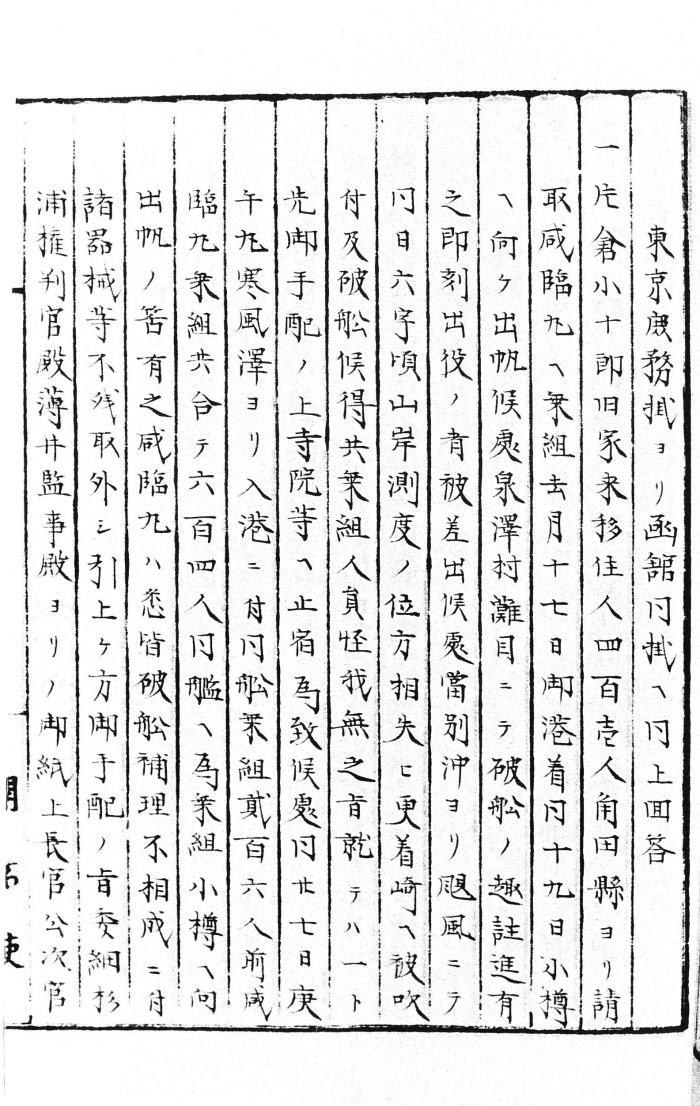 東京庶務掛ヨリ函舘同掛ヘ同上回答
一片倉小十郎旧家来移住人四百壱人角田縣ヨリ請
取咸臨丸ヘ乗組去月十七日御港着同十九日小樽
ヘ向ケ出帆候處泉澤村灘目ニテ破舩ノ趣註進有
之即刻出役ノ者被差出候處當別沖ヨリ颶風ニテ
同日六字頃山岸測度ノ位方相失ヒ更着崎ヘ被吹
付及破舩候得共乗組人員怪我無之旨就テハ一ト
先御手配ノ上寺院等ヘ止宿為致候處同廿七日庚
午丸寒風澤ヨリ入港ニ付同舩乗組貳百六人前咸
臨丸乗組共合テ六百四人同艦ヘ為乗組小樽ヘ向
出帆ノ筈有之咸臨丸ハ悉皆破舩補理不相成ニ付
諸器械等不残取外シ引上ケ方御手配ノ旨委細杉
浦権判官殿薄井監事殿ヨリノ御紙上長官公次官
開拓使